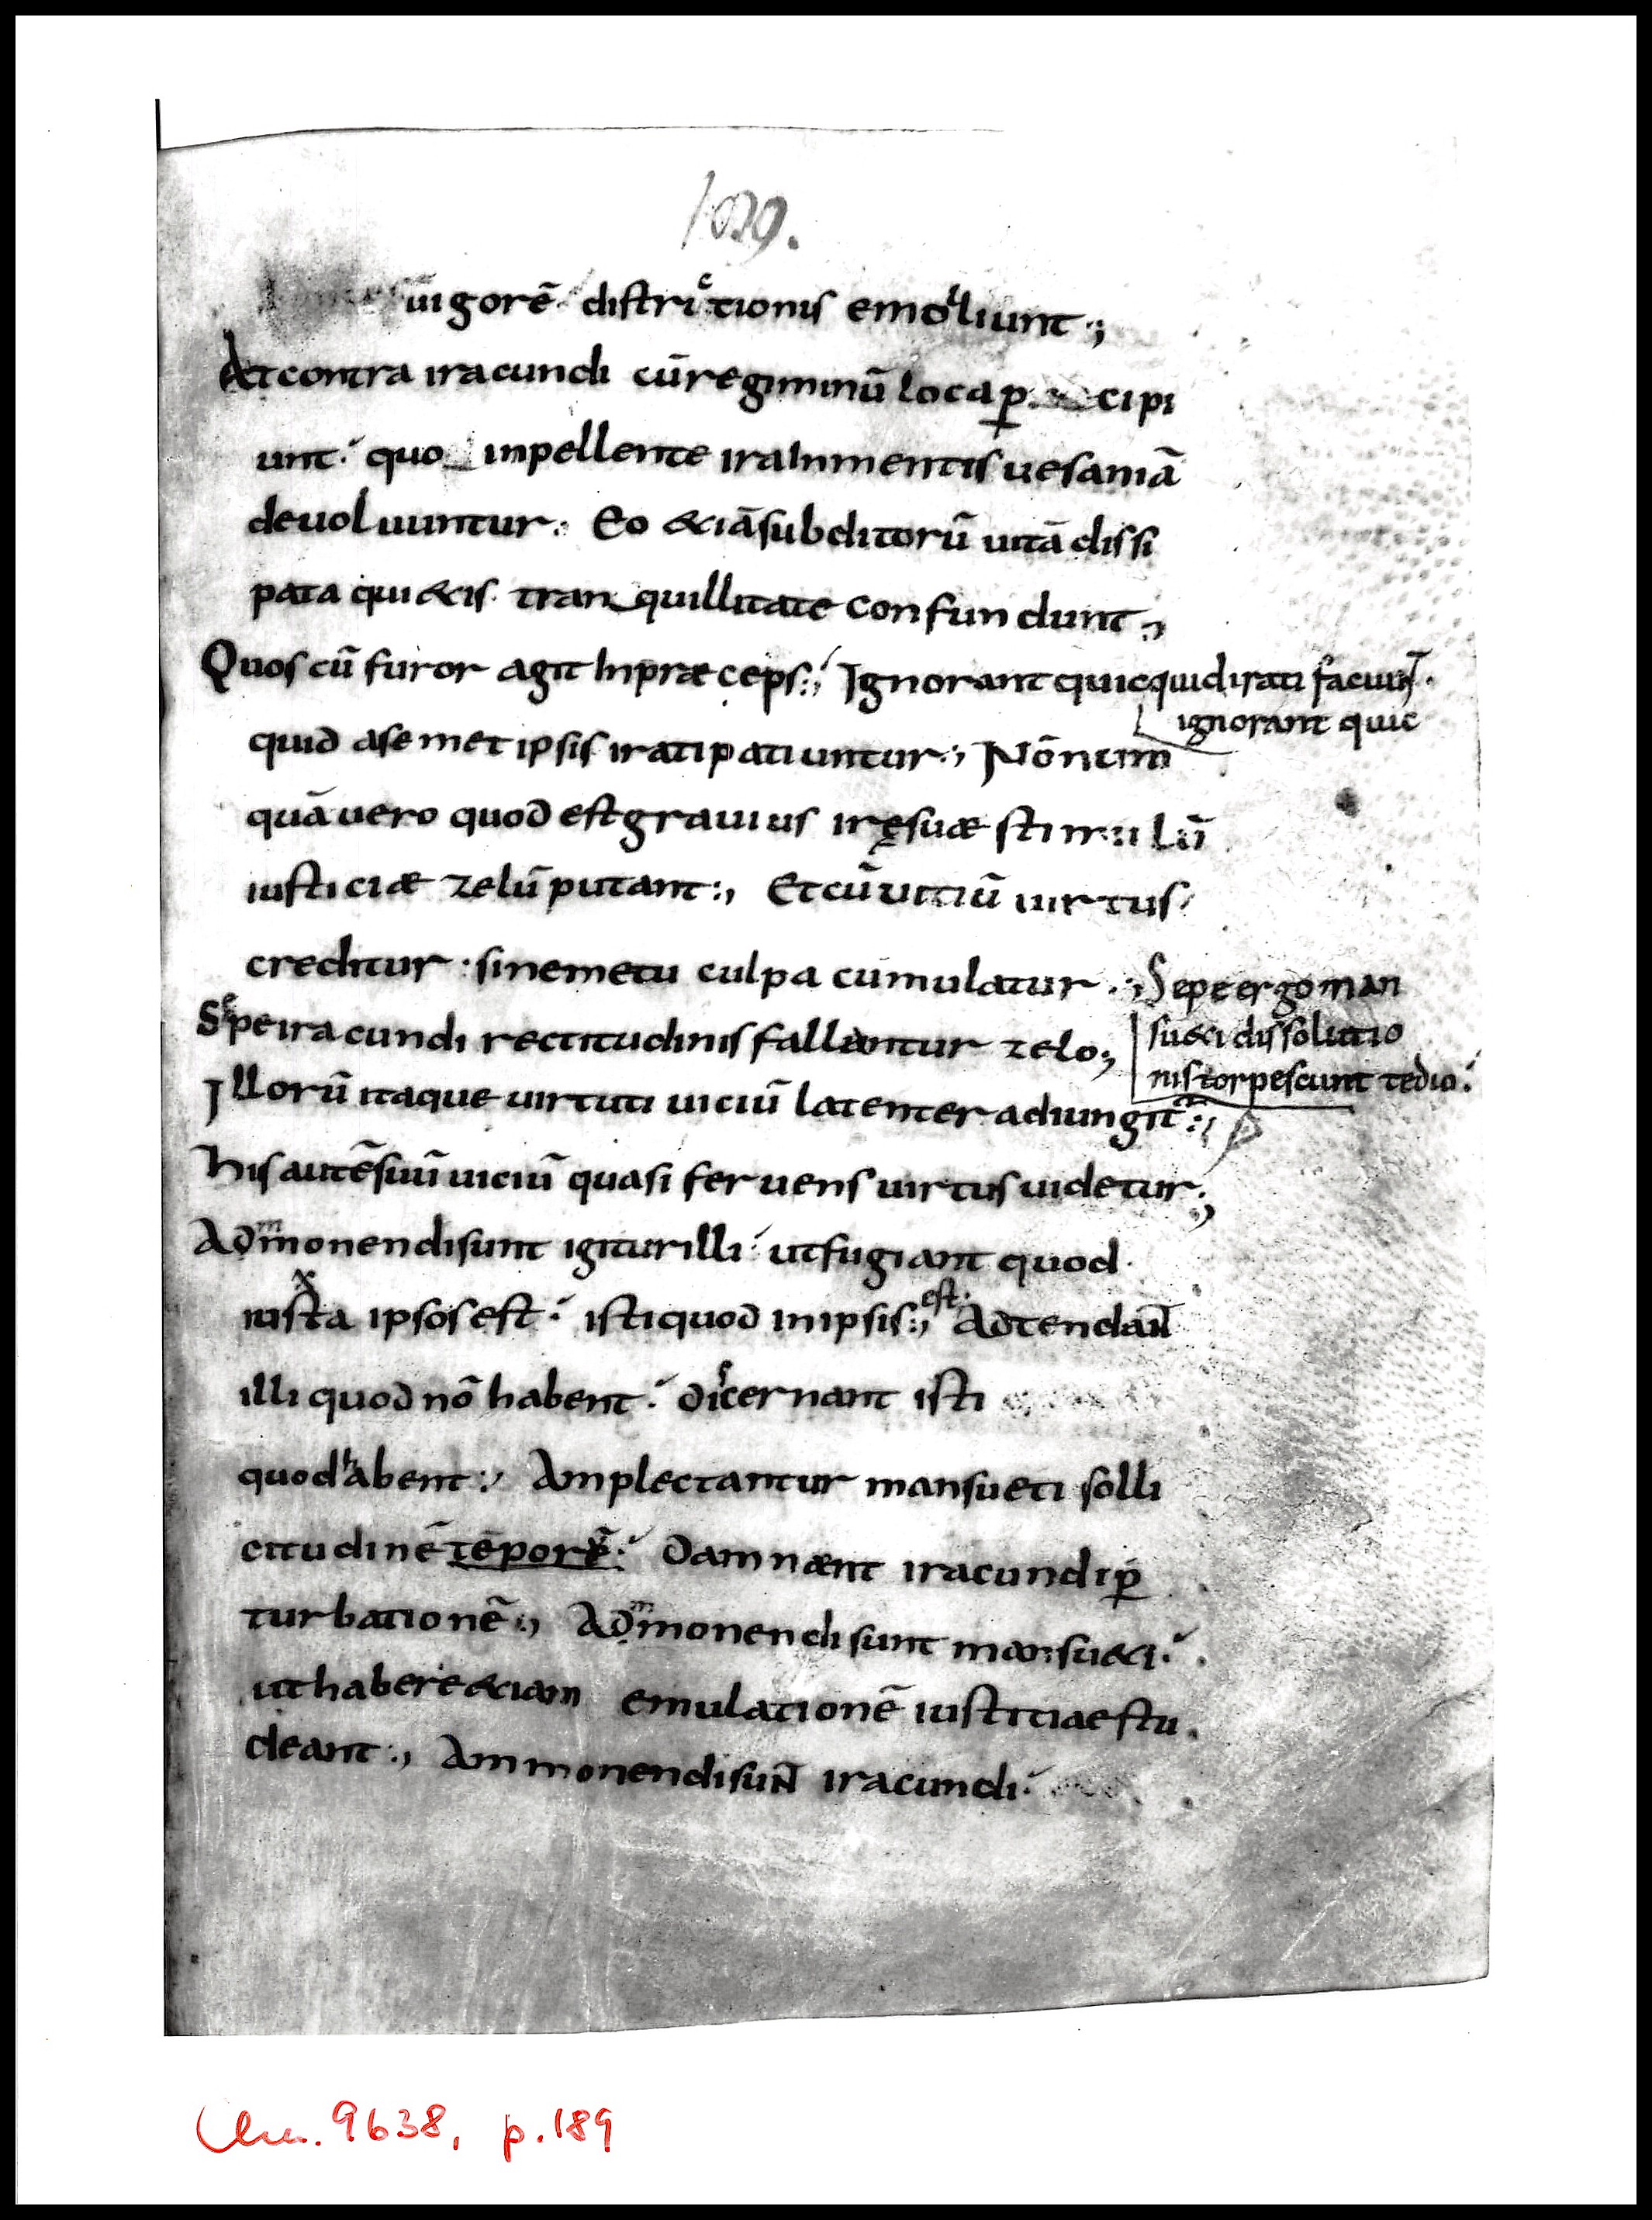 189.
uigorē distri\c/tionis emo\l/liunt·;
At contra iracundi cū regiminū loca p̲ cipi
unt· quo inpellente ira In mentis uesaniā
deuoluuntur: Eo &iā subditorū uitā dissi
pata qui&is tranquillitate confundunt·;
Quos cū furor agit Inpræceps:; Ignorant quicquid irati faciunt·
ignorant quic
quid a semet ipsis irati patiuntur:; Nō num
quā uero quod est grauius irę suæ stimulū
iusticiæ zelū putant:; Et cū uitiū uirtus
creditur· sine metu culpa cumulatur·; Sepe ergo man
su&i dissolutio
nis torpescunt tedio·
Sepe iracundi rectitudinis falluntur zelo;
Illorū itaque uirtuti uiciū latenter adiungit:;
his autē suū uiciū quasi feruens uirtus uidetur;
Ad\m/monendi sunt igitur illi· ut fugiant quod
ius\x/ta ipsos est· isti quod in ipsis:; \est·/ Adtendant
illi quod nō habent· di\s/cernant isti
quod \h/abent:; Amplectantur mansueti solli
citudinē tēporē· Damnænt iracundi p̲
turbationē:; Ad\m/monendi sunt mansu&i·
ut habere &iam emulationē iustitiae stu
deant:; Ammonendi sunt iracundi·
Clm. 9638, p. 189